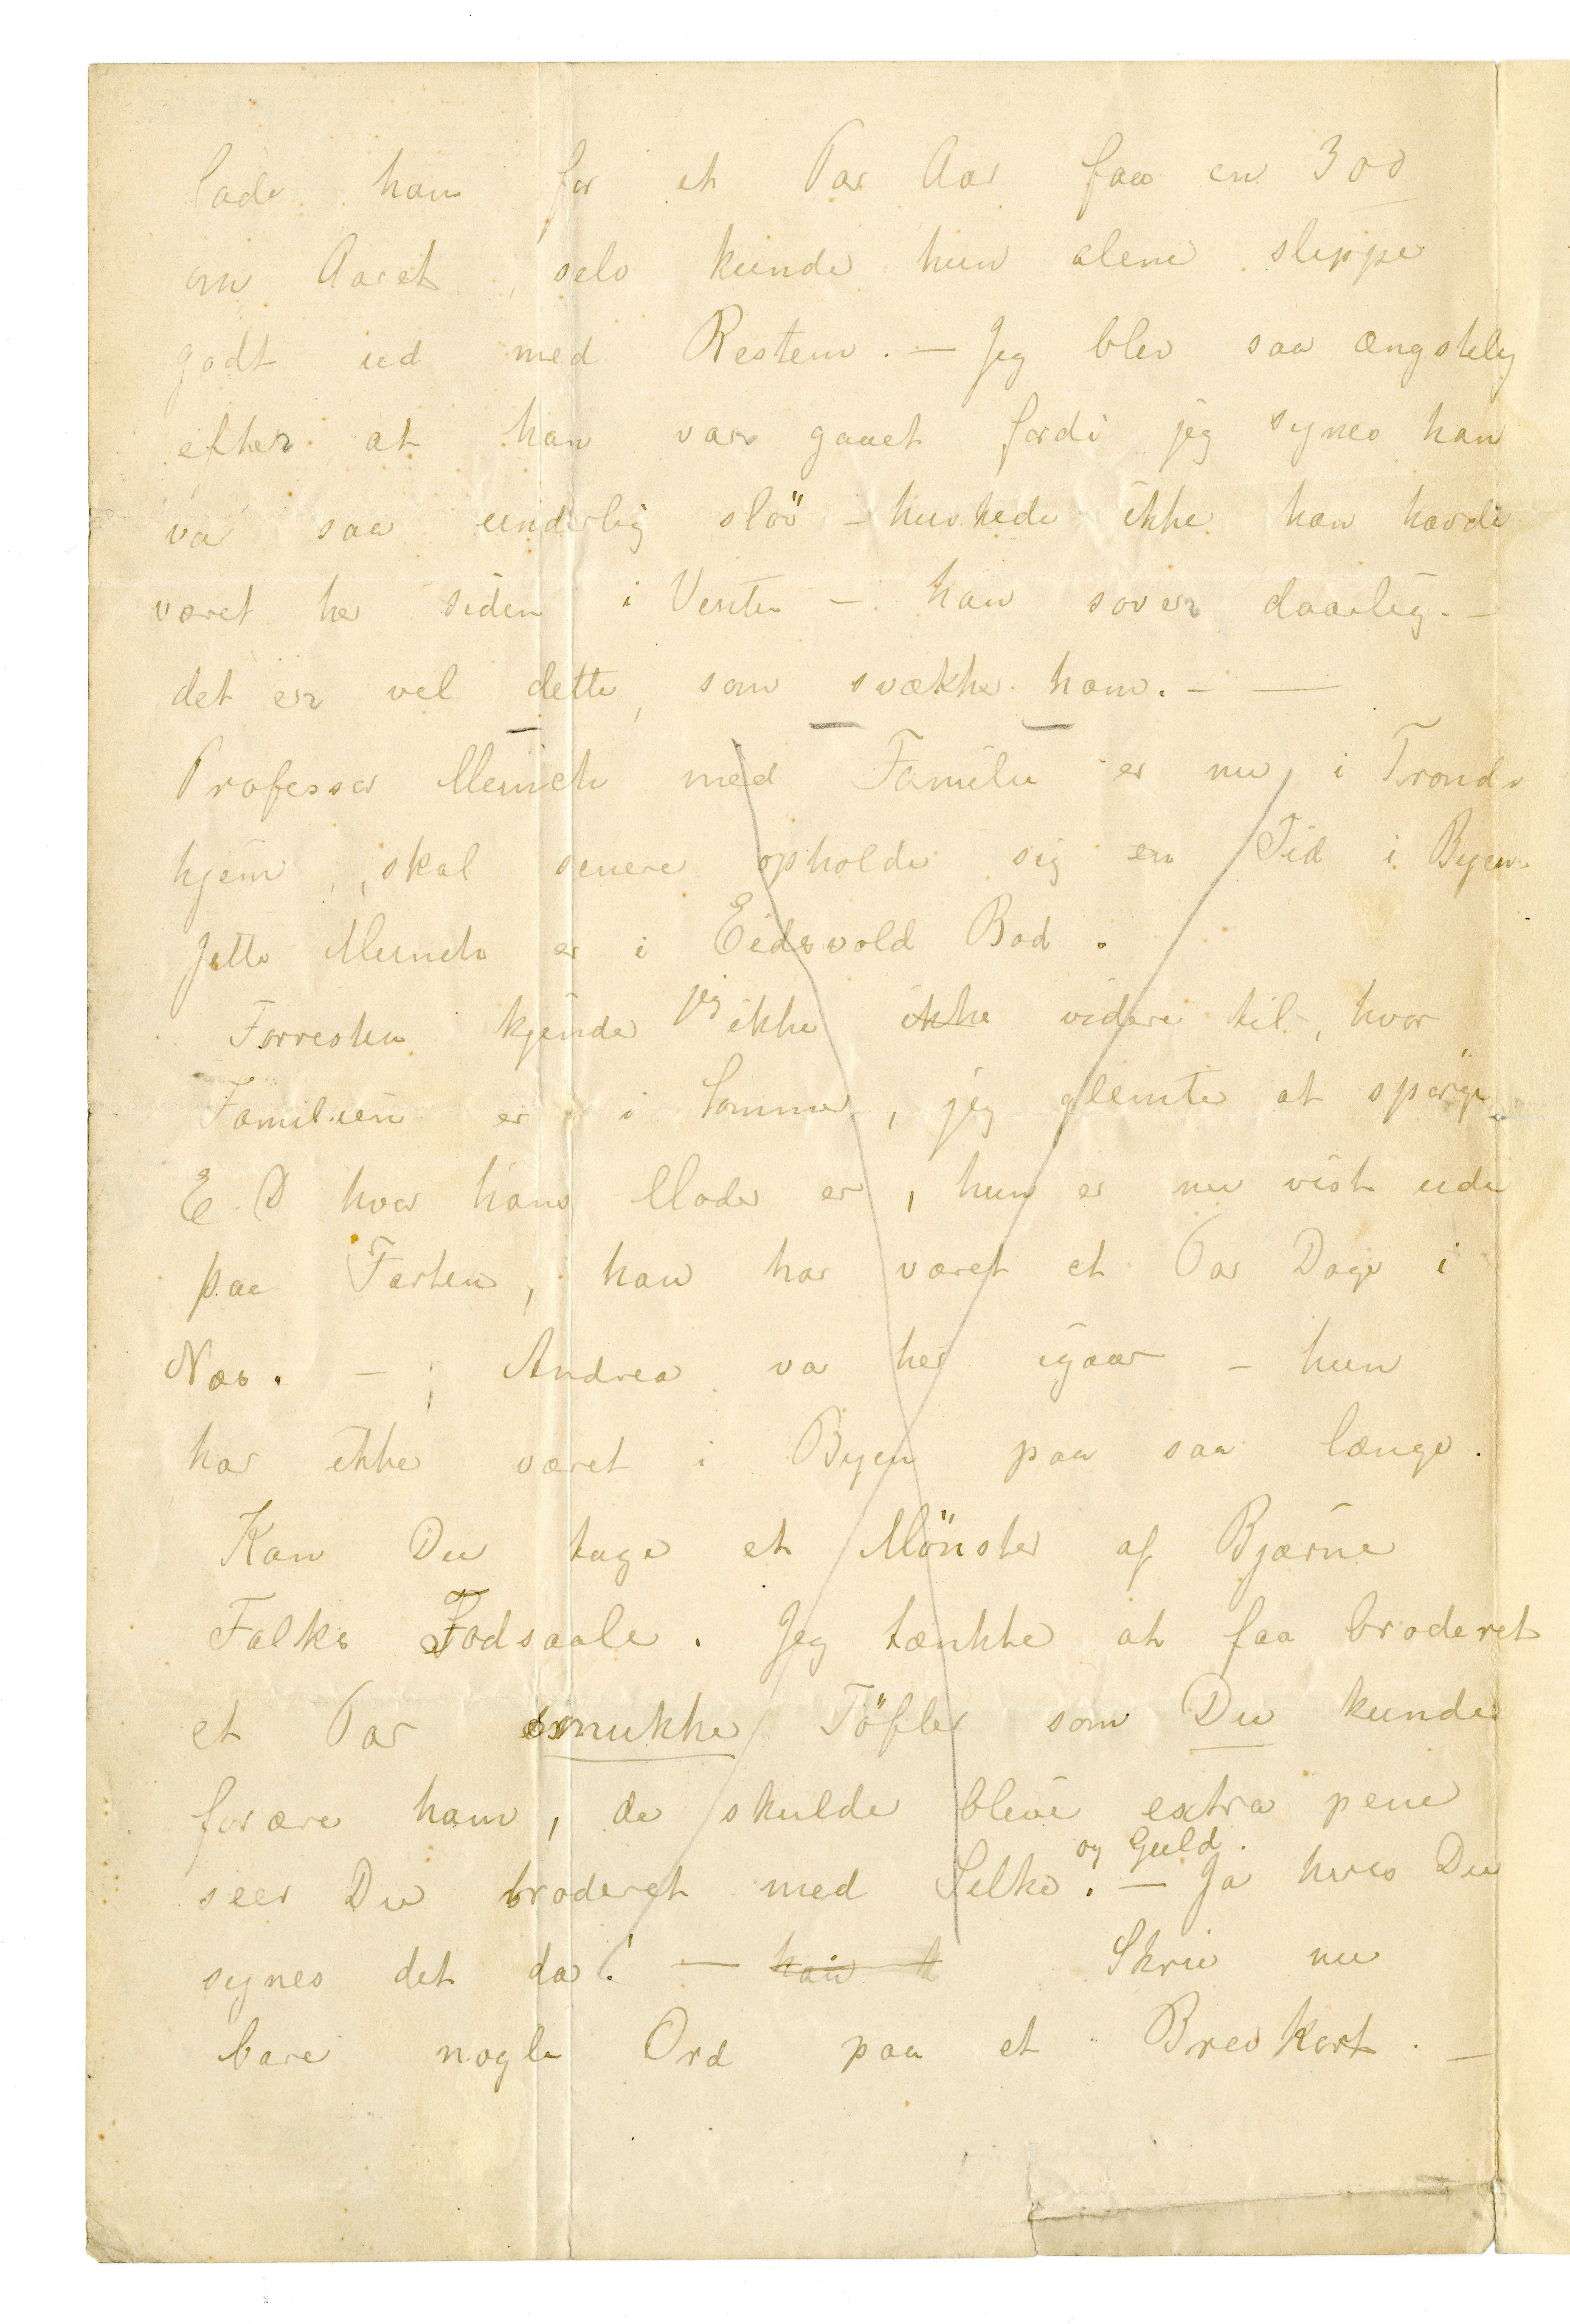 lade ham for et Par Aar faa en 300
om Aaret, selv kunde hun alene slippe
godt ud med Resten. – Jeg blev saa ængstelig
efter at han var gaaet fordi jeg synes han
var saa underlig slöv – huskede ikke han havde
været her siden i Vinter – han sover daarlig. –
det er vel dette, som svækker ham. – —
Professor Munch med Familie er nu i Trond-
hjem, skal senere opholde sig en Tid i Byen.
Jette Munch er i Eidsvold Bad.
Forresten kjender jeg ikke ikke videre til, hvor
Familien er i Sommer, jeg glemte at spörge
E. D hvor hans Moder er, hun er nu vist ude
paa Farten, han har været et Par Dage i
Næs. – ; Andrea var her igaar – hun
har ikke været i Byen paa saa længe.
Kan Du tage et Mönster af Bjærne
Falks Fodsaale. Jeg tænkte at faa broderet
et Par smukke Töfler som Du kunde
forære ham, de skulde blive extra pene
seer Du broderet med Silke og Guld. – Ja hvis Du
synes det da! – han k Skriv nu
bare nogle Ord paa et Brevkort. –